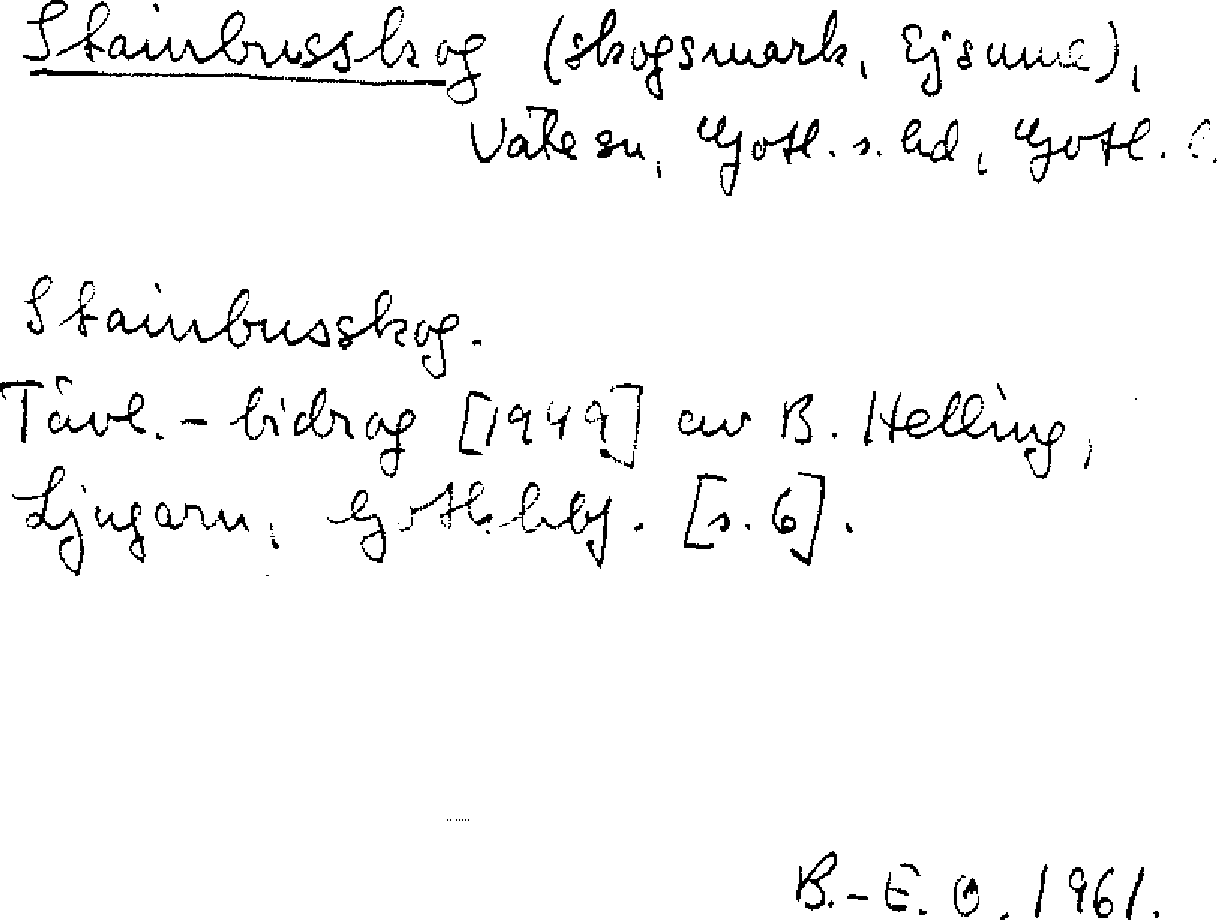 Stainbusskog (skogsmark, Ejsume),
Väte sn, Gotl. s. hd, Gotl. l.
Stainbusskog.
Tävl.-bidrag [1949] av B. Helling,
Ljugarn, Gotl. hbf. [s. 6].
B.-E. O. 1961.